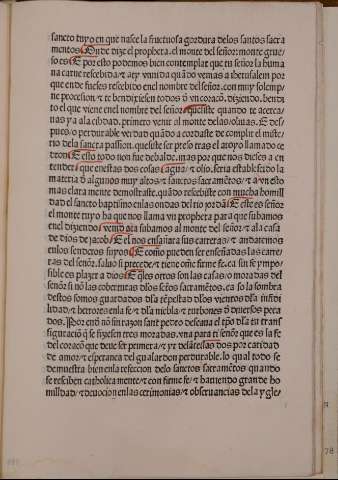 sancto tuyo en que nasce la fructuosa gordura delos santos sacra
mentos. Onde dize el propheta. el monte del señor: monte grue/
so es. E por esto podemos bien contemplar que tu señor la huma
na carne rescebida/ τ aty vnida quãdo venias a iherusalem por
que ende fueses rescebido enel nombre del señor. con muy solemp/
ne procesion/ τ te bendixiesen todos d̃ vn coraçõ. diziendo. bendi
to el que viene enel nombre del señor/ quesiste quando te acerca/
uas ya ala cibdad. primero venir al monte delas oliuas. E des/
pues/ o perdurable verdad quãdo acordaste de complir el miste/
rio dela sancta passion. quesiste ser preso tras el arroyo llamado ce
dron. E esto todo non fue debalde. mas por que nos dieses a en
tender/ que en estas dos cosas/ agua/ τ olio. seria establesçido la
materia d̃ algunos muy altos/ τ sanctos sacramẽtos/ τ a vn esto
mas clara mente demostraste. quãdo rescebiste con mucha homill
dad el sancto baptismo en las ondas del rio jordã. E este es señor
el monte tuyo ha que nos llama vn propheta para que subamos
en el diziendo. venid ata subamos al monte del señor/ τ ala casa
de dios de jacob. E el nos enseñara sus carreras/ τ andaremos
en los senderos suyos. E como pueden ser enseñadas las carre/
ras del señor. saluo si precede/ τ tiene onde firme fe. ca sin fe ympo/
sible es plazer a dios. E q̃les otros son las casas/ o moradas del
señor si nõ las coberturas dlos sctos sacramẽtos. ca so la sombra
destos somos guardados dla tẽpestad dlos vientos dla infidi
lidad/ τ herrores en la fe/ τ dla niebla/ τ turbones d̃ diuersos peca
dos. Por end̃ nõ sin razon sant pedro deseaua el tp̃o dla tu trans
figuraciõ q̃ se fiziesen tres moradas. vna para ti señor que es la fe
del coraçõ que deue ser primera/ τ yr delante. las dos por caridad
de amor/ τ esperança del gualardon perdurable. lo qual todo se
demuestra bien en la refeccion delos sanctos sacramẽtos quando
se resciben catholica mente/ τ con firme fe/ τ hauiendo grande ho
milldad/ τ deuocion en las cerimonias/ τ obseruancias dela ygle/
78